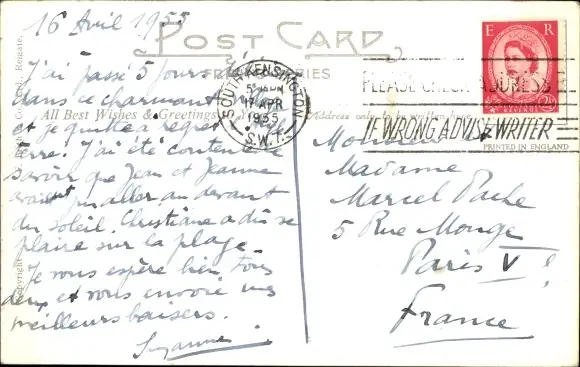 16 Avril 1955
POST CARD
J'ai passé 5 jours
dans ce charmant
All Best Wishes & Greetings
et je quitte à regret
terre. J'ai été contente de
savoir que Jean et Jeanne
avaient pu aller au devant
du soleil. Christiane a dû se
plaire sur la plage.
Je vous espère bien tous
deux et vous envoie mes
meilleurs baisers.
Suzanne
SOUTH KENSINGTON
17 APR
1955
S.W.7.
E R
PLEASE CHECK ADDRESS
IF WRONG ADVISE WRITER
Address only to be written here
PRINTED IN ENGLAND
Monsieur et
Madame
Marcel Pache
5 Rue Monge
Paris V
France
Copyright
Reigate.